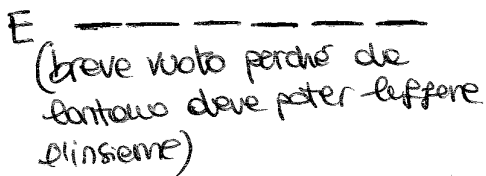 E — — — — — —
(breve vuoto perché da
lontano deve poter leggere
l'insieme)